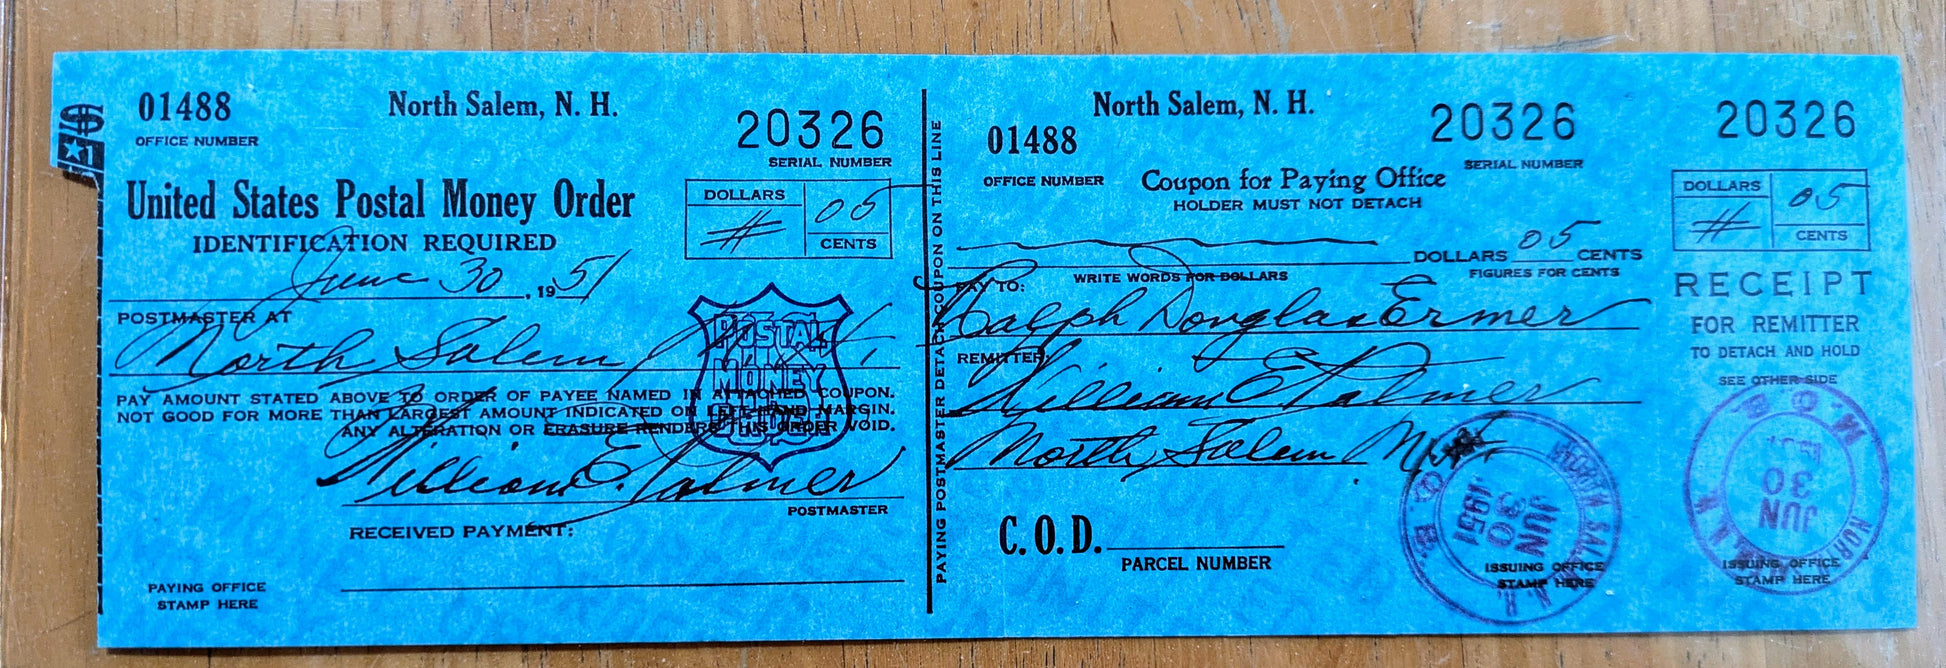 $1
01488
OFFICE NUMBER
North Salem, N. H.
20326
SERIAL NUMBER
United States Postal Money Order
IDENTIFICATION REQUIRED
DOLLARS
05
CENTS
June 30, 1951
POSTMASTER AT
North Salem N. H.
POSTAL
MONEY
ORDER
PAY AMOUNT STATED ABOVE TO ORDER OF PAYEE NAMED IN ATTACHED COUPON.
NOT GOOD FOR MORE THAN LARGEST AMOUNT INDICATED ON LEFT-HAND MARGIN.
ANY ALTERATION OR ERASURE RENDERS THIS ORDER VOID.
William E. Palmer
POSTMASTER
RECEIVED PAYMENT:
PAYING OFFICE
STAMP HERE
PAYING POSTMASTER DETACH COUPON ON THIS LINE
North Salem, N. H.
01488
OFFICE NUMBER
20326
SERIAL NUMBER
Coupon for Paying Office
HOLDER MUST NOT DETACH
DOLLARS 05 CENTS
WRITE WORDS FOR DOLLARS
FIGURES FOR CENTS
PAY TO:
Ralph Douglas Ermer
REMITTER:
William E Palmer
North Salem N. H.
C.O.D.
PARCEL NUMBER
NORTH SALEM
JUN
30
1951
M.O.B.
N.H.
ISSUING OFFICE
STAMP HERE
20326
DOLLARS
05
CENTS
RECEIPT
FOR REMITTER
TO DETACH AND HOLD
SEE OTHER SIDE
M.O.B.
JUN
30
1951
N.H.
ISSUING OFFICE
STAMP HERE